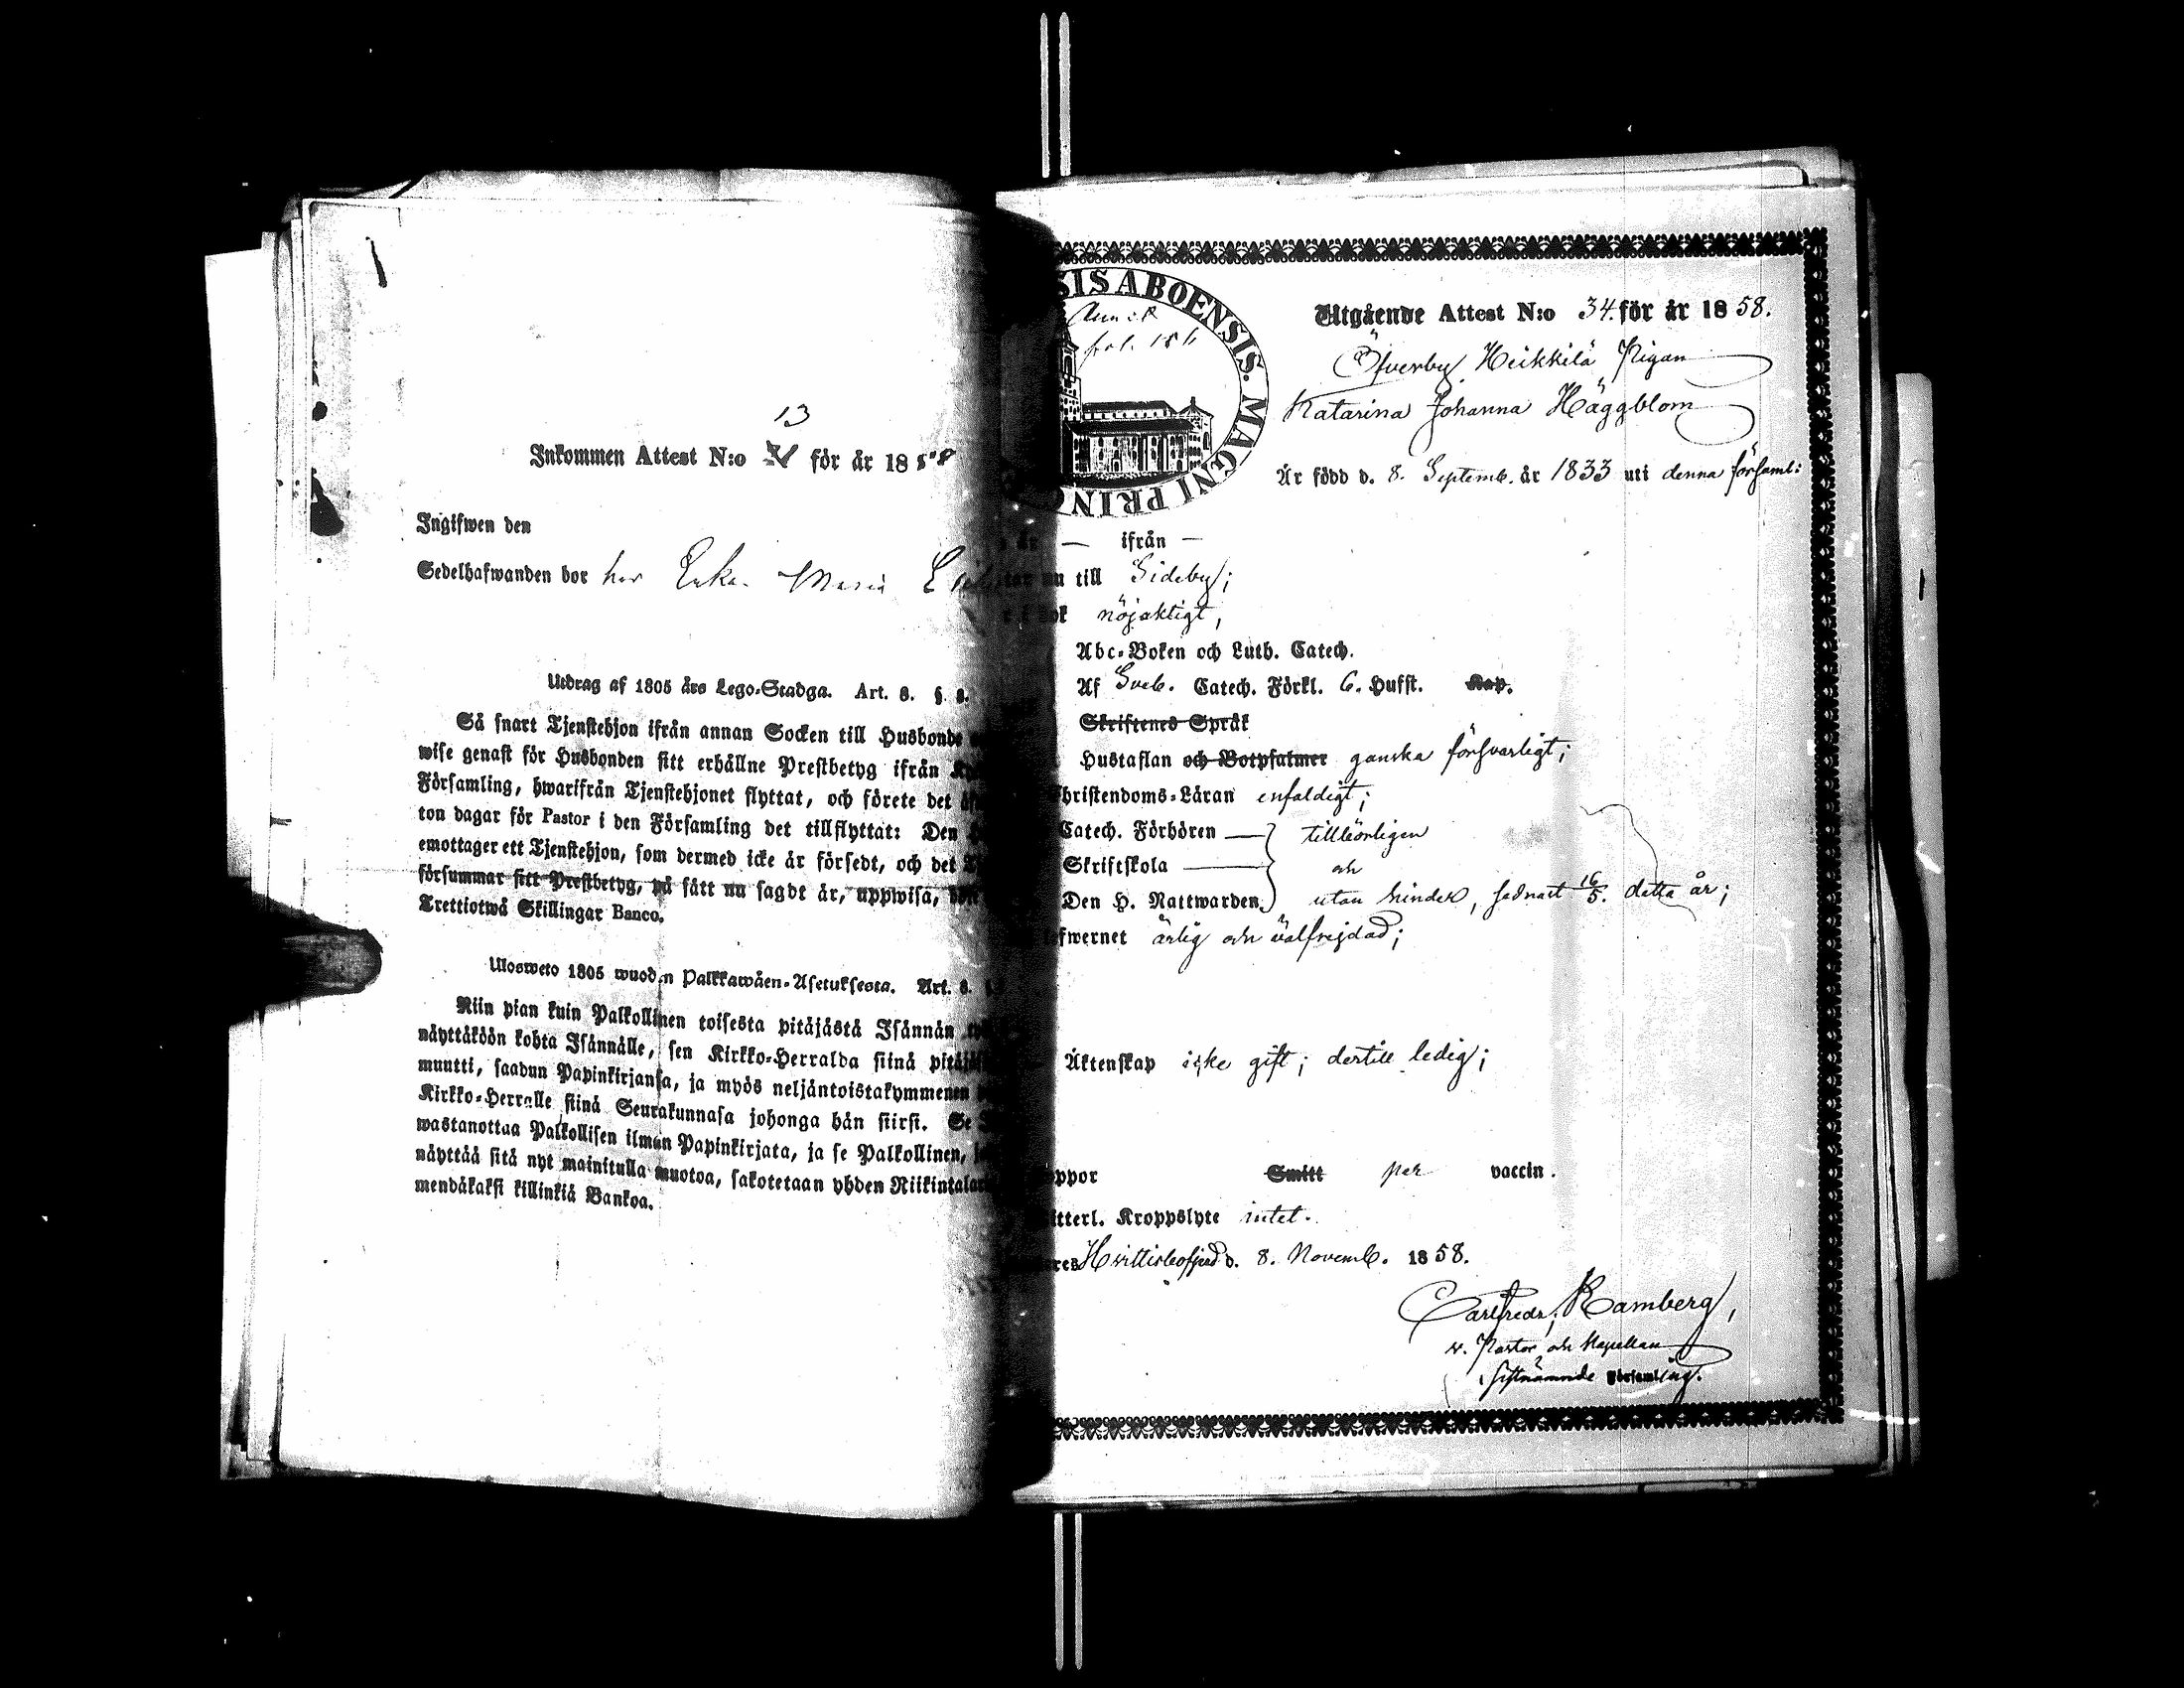 13
Inkommen Attest N:o för år 1858
Ingifwen den
Sedelhafwanden bor hos Maria
Utdrag af 1805 års Lego-Stadga. Art. 8. §. 8.
Så snart Tjenstehjon ifrån annan Socken till Husbonde
wise genast för Husbonden sitt erhållne Prestbetyg ifrån
Församling, hwarifrån Tjenstehjonet flyttat, och förete det
ton dagar för Pastor i den Församling det tillflyttat: Den
emottager ett Tjenstehjon, som dermed icke är försedt, och det
försummar sitt Prestbetyg, på sätt nu sagdt är, uppwisa,
Trettiotwå Skillingar Banco.
Ulosweto 1805 wuoden Palkkawäen-Asetuksesta. Art. 8.
Niin pian kuin Palkollinen toisesta pitäjästä Isännän
näyttäköön kohta Isännälle, sen Kirkko-Herralda siinä
muutti, saadun Papinkirjansa, ja myös neljäntoistakymmenen
Kirkko-Herralle siinä Seurakunnasa johonga hän siirsi. Se
wastanottaa Palkollisen ilman Papinkirjata, ja se Palkollinen,
näyttää sitä nyt mainitulla muotoa, sakotetaan yhden
mendäkaksi killinkiä Bankoa.
SIS ABOENSIS. MAGNI PRINC
Utgående Attest N:o 34. för år 1858.
Öfverby Heikkilä Pigan
Katarina Johanna Häggblom
Är född d. 8. Septemb. år 1833 uti denna församl:
år — ifrån —
nu till Sideby;
bok nöjaktigt,
Abc-Boken och Luth. Catech.
Af Sveb. Catech. Förkl. 6. Hufst. Kap.
Skriftenes Språk
Hustaflan och Botpsalmer ganska försvarligt;
Christendoms-Läran enfaldigt;
Catech. Förhören — tillbörligen
Skriftskola — och
Den H. Nattwarden utan hinder, sednast 16/5. detta år;
lefwernet ärlig och välfrejdad;
Äktenskap icke gift; dertill ledig;
koppor Smitt per vaccin.
Kroppslyte intet.
Hvittisbofjerd d. 8. Novemb. 1858.
Carl Fredr. Ramberg,
v. Pastor och Kapellan
i sistnämnde Församling.